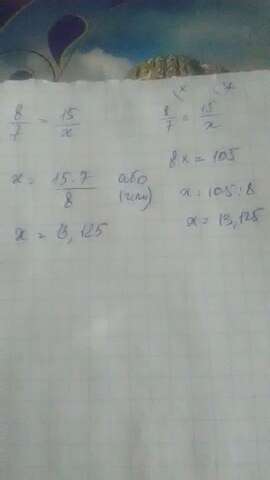 8/7 = 15/x
x = 15·7/8 або (или)
x = 13,125
8/7 = 15/x
8x = 105
x = 105 : 8
x = 13,125